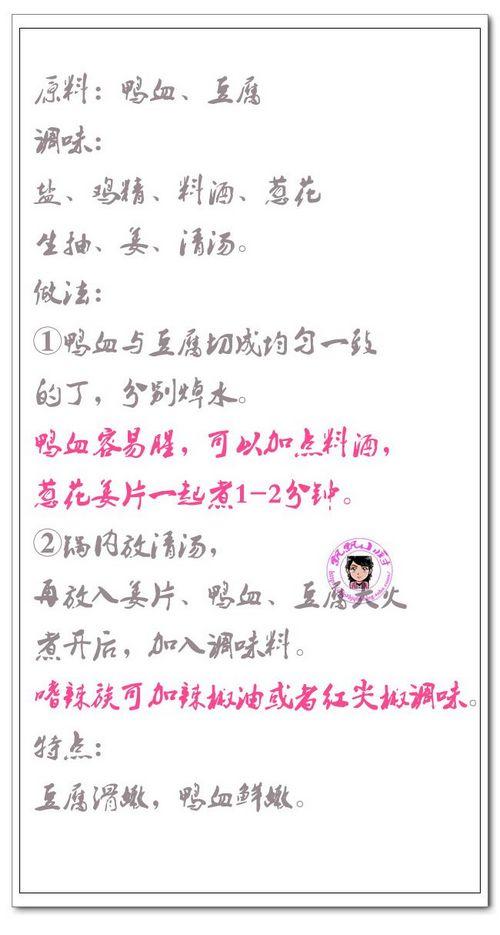 原料：鸭血、豆腐
调味：
盐、鸡精、料酒、葱花
生抽、姜、清汤。
做法：
①鸭血与豆腐切成均匀一致
的丁，分别焯水。
鸭血容易腥，可以加点料酒，
葱花姜片一起煮1-2分钟。
②锅内放清汤，
再放入姜片、鸭血、豆腐大火
煮开后，加入调味料。
嗜辣族可加辣椒油或者红尖椒调味。
特点：
豆腐滑嫩，鸭血鲜嫩。